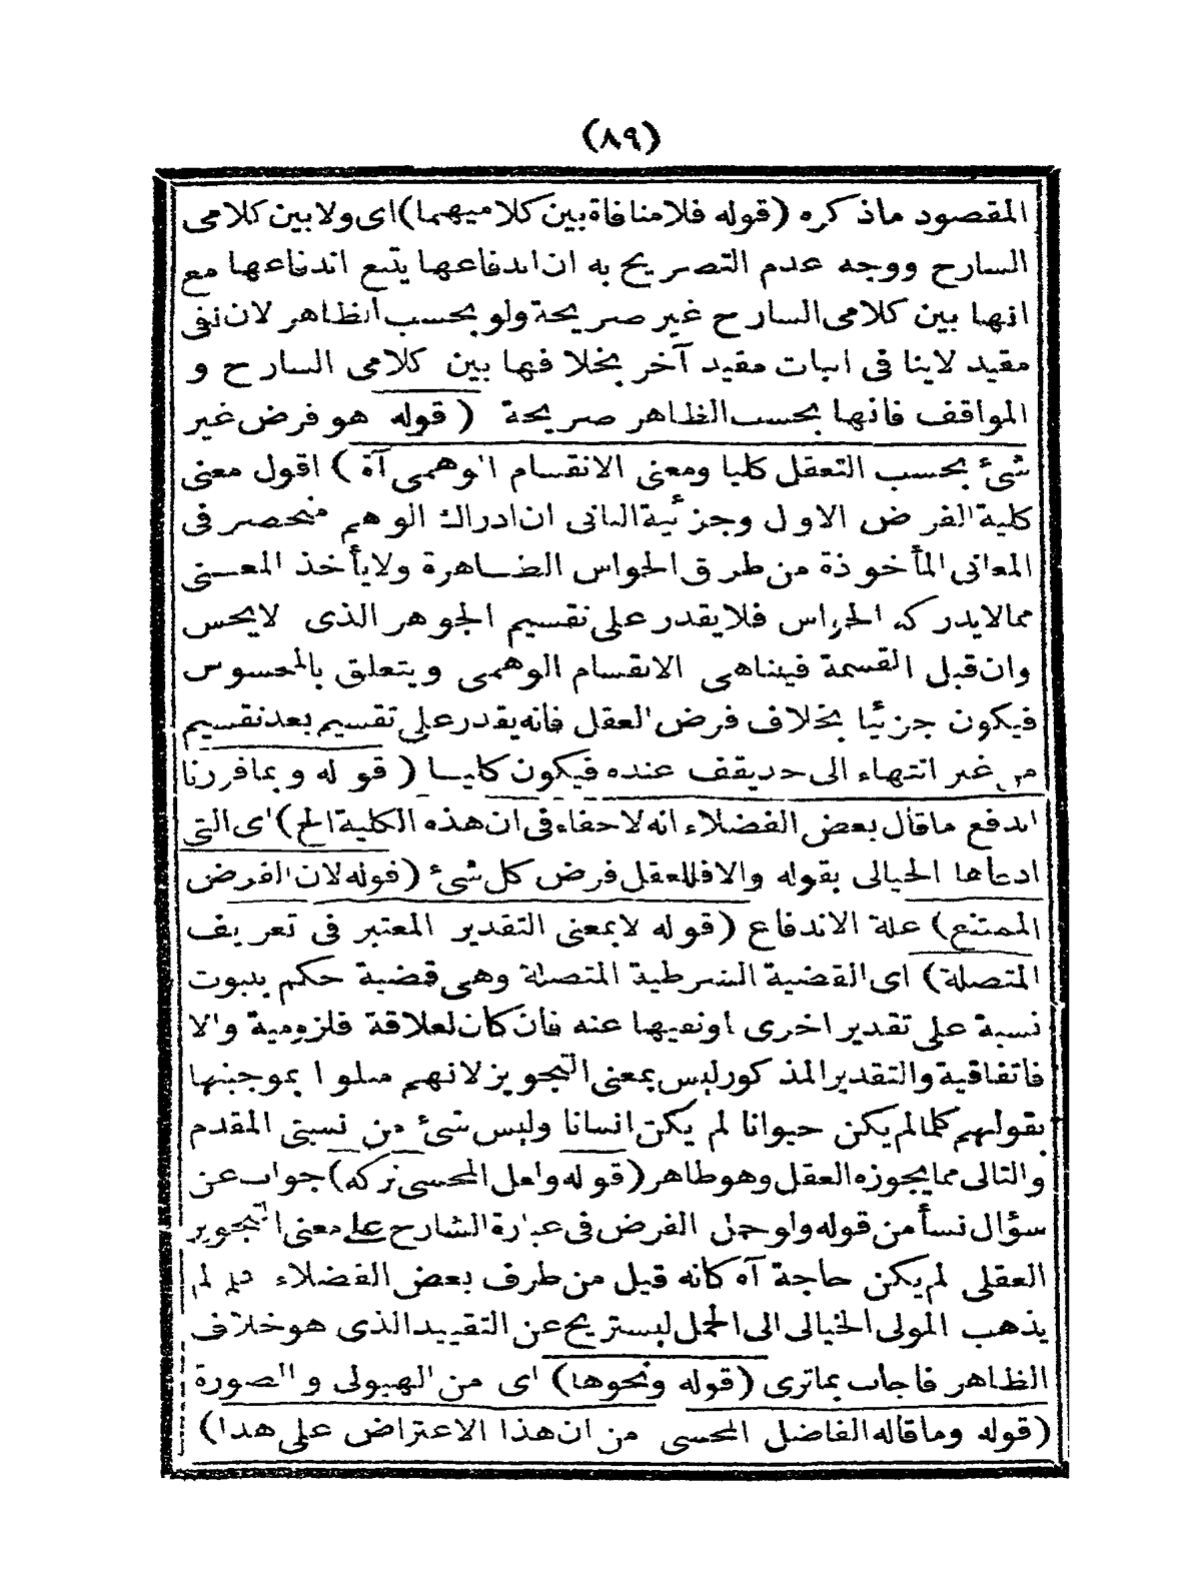 (٨٩)
المقصود ماذكره (قوله فلا منافاة بين كلاميهما) اى ولا بين كلامى
الشارح ووجه عدم التصريح به ان اندفاعها يتبع اندفاعها مع
انها بين كلامى الشارح غير صريحة ولو بحسب الظاهر لان نفى
مقيد لاينافى اثبات مقيد آخر بخلافها بين كلامى الشارح و
المواقف فانها بحسب الظاهر صريحة (قوله هو فرض غير
شئ بحسب التعقل كليا ومعنى الانقسام الوهمى آه) اقول معنى
كلية الفرض الاول وجزئية الثانى ان ادراك الوهم منحصر فى
المعانى المأخوذة من طرق الحواس الظاهرة ولا يأخذ المعنى
مما لا يدركه الحواس فلا يقدر على تقسيم الجوهر الذى لايحس
وان قبل القسمة فيتناهى الانقسام الوهمى ويتعلق بالمحسوس
فيكون جزئيا بخلاف فرض العقل فانه يقدر على تقسيم بعد تقسيم
من غير انتهاء الى حد يقف عنده فيكون كليا (قوله وبما قررنا
اندفع ماقال بعض الفضلاء انه لا خفاء فى ان هذه الكلية الخ) اى التى
ادعاها الخيالى بقوله والا فللعقل فرض كل شئ (قوله لان الفرض
الممتنع) علة الاندفاع (قوله لا بمعنى التقدير المعتبر فى تعريف
المتصلة) اى القضية الشرطية المتصلة وهى قضية حكم بثبوت
نسبة على تقدير اخرى او نفيها عنه فان كان لعلاقة فلزومية والا
فاتفاقية والتقدير المذكور ليس بمعنى التجويز لانهم مثلوا بموجبتها
بقولهم كلما لم يكن حيوانا لم يكن انسانا وليس شئ من نسبتى المقدم
والتالى مما يجوزه العقل وهو ظاهر (قوله ولعل المحشى تركه) جواب عن
سؤال نشأ من قوله ولو حمل الفرض فى عبارة الشارح على معنى التجويز
العقلى لم يكن حاجة آه كانه قيل من طرف بعض الفضلاء فلم لم
يذهب المولى الخيالى الى الحمل ليستريح عن التقييد الذى هو خلاف
الظاهر فاجاب بماترى (قوله ونحوها) اى من الهيولى والصورة
(قوله وماقاله الفاضل المحشى من ان هذا الاعتراض على هذا)